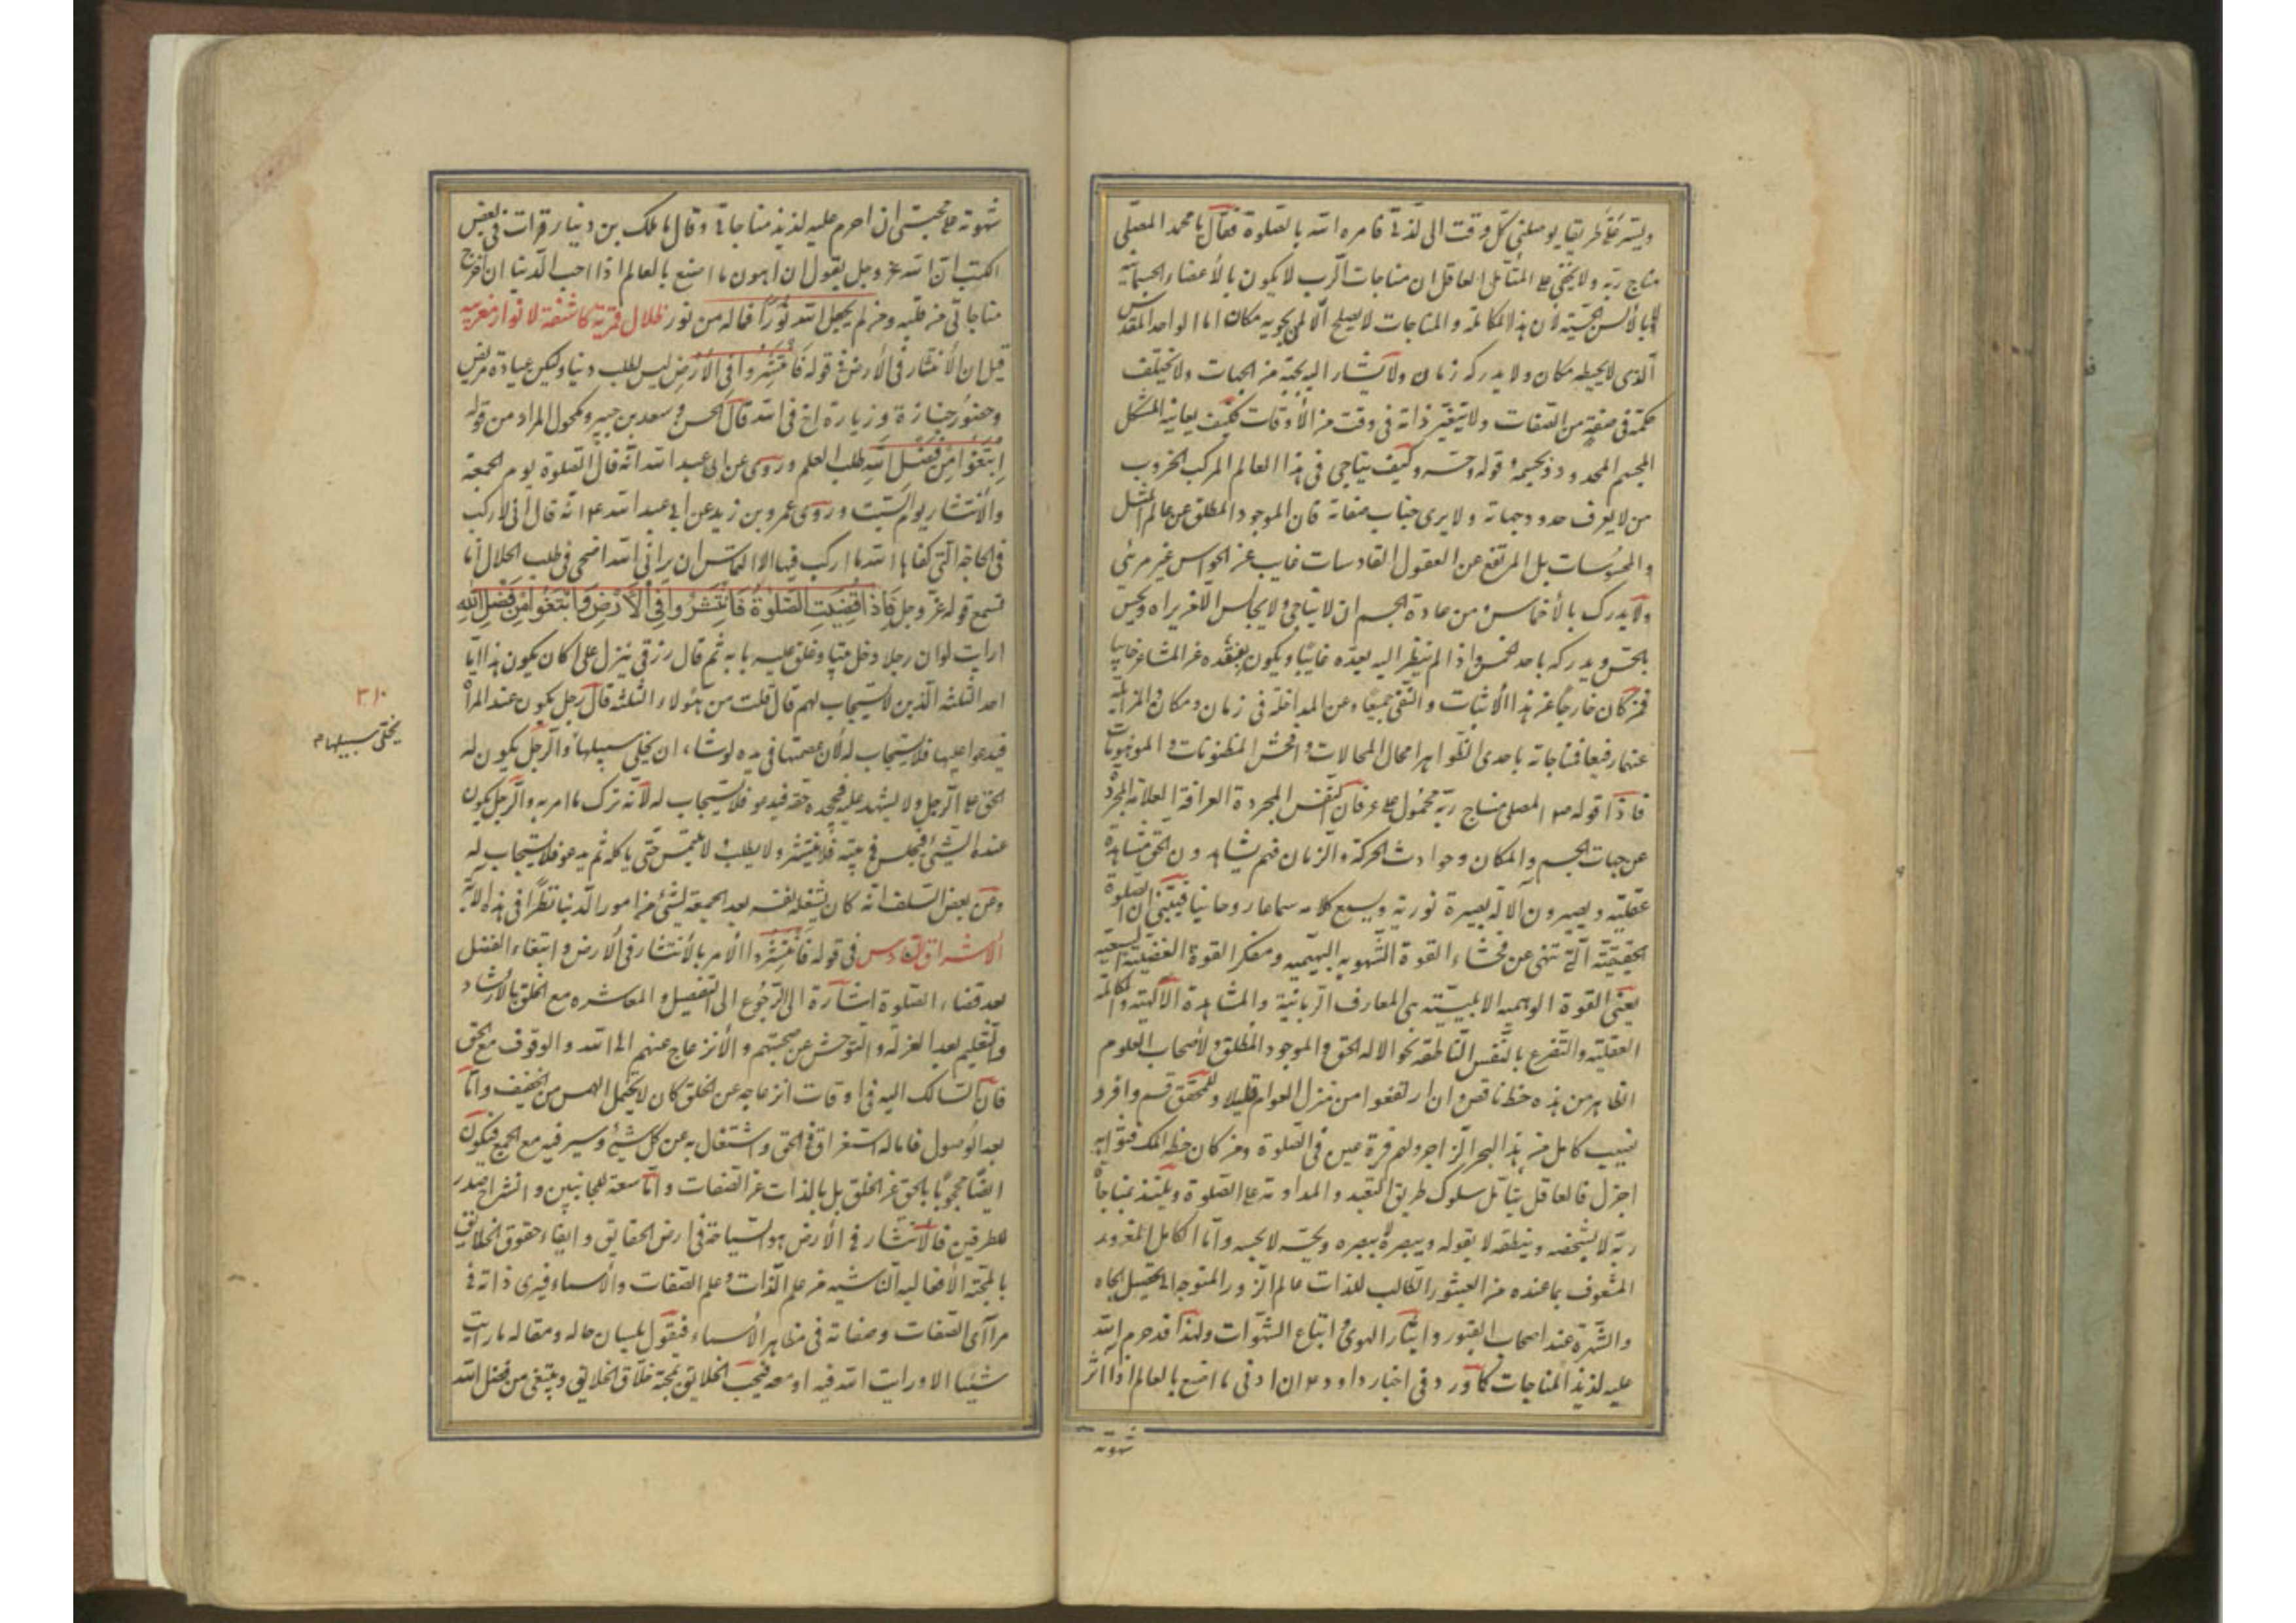 ويتسر على طريقا يوصلني كل وقت الى لذتي فامره الله بالصلوة فقال يا محمد المصلى
مناج ربه ولا يخفى على المتأمل العاقل ان مناجات الرب لا يكون بالأعضاء الجسمانية
بالألسن الحسية لأن هذا المكالمة والمناجات لا يصلح الا لمن يحويه مكان اما الواحد المقدس
الذى لا يحيطه مكان ولا يدركه زمان ولا يشار اليه بجهة من الجهات ولا يختلف
حكمه فى صفة من الصفات ولا يتغير ذاته فى وقت من الأوقات فكيف يعاينه المشكل
المجسم المحدود وكيف يناجى فى هذا العالم المركب
من لا يعرف حدود جهاته ولا يرى جناب صفاته فان الموجود المطلق عن عالم المثل
والمحسوسات بل المرتفع عن العقول القادسات غايب عن الحواس غير مرئى
ولا يدرك بالأخماس ومن عادة الجسم ان لا يناجى ولا يجالس الا من يراه ويحس
بالحس ويدركه باحد الخمس واذا لم ينظر اليه يعده غائبا ويكون
فمن كان خارجا عن هذا الأثبات والنفى جميعا وعن المداخلة فى زمان ومكان والمزايلة
عنهما رفيعا فمناجاته باحدى الظواهر امحال المحالات وافحش المظنونات و الموهومات
فاذا قوله ص المصلى مناج ربه محمول على عرفان النفس المجردة العرافة العلامة المجردة
عن جهات الجسم والمكان وحوادث الحركة والزمان فهم يشاهدون الحق مشاهدة
عقلية ويبصرون الآله بصيرة نورية ويسمع كلامه سماعا روحانيا فيتبين ان الصلوة
الحقيقية التى تنهى عن فحشاء القوة الشهوية البهيمية ومنكر القوة الغضبية السبعية
يعنى القوة الوهمية الابليسية هى المعارف الربانية والمشاهدة الآلهية والمكالمة
العقلية والتضرع بالنفس الناطقة نحو الاله الحق والموجود المطلق ولأصحاب العلوم
الظاهر من هذه حظ ناقص وان ارتفعوا من منزل العوام قليلا وللمحقق قسم وافر و
نصيب كامل من هذا البحر الزاجر ولهم قرة عين فى الصلوة ومن كان حظه الملك فثوابه
اجزل فالعاقل يتأمل سلوك طريق التعبد والمداومة على الصلوة ويلتذ بمناجاة
ربه لا بشخصه وينطقه لا بقوله ويبصره ببصره ويحسه لا بحسه واما الكامل المغرور
المشعوف بما عنده من القشور الطالب للذات عالم الزور المتوجه الى تحصيل الجاه
والشهرة عند اصحاب القبور وايثار الهوى واتباع الشهوات ولهذا قد حرم الله
عليه لذيذ المناجات كما ورد فى اخبار داود ان ادنى ما اصنع بالعالم اذا اثر
شهوته
شهوته على محبتى ان احرم عليه لذيذ مناجاتى وقال مالك بن دينار قرات فى بعض
الكتب ان الله عز وجل يقول ان اهون ما اصنع بالعالم اذا احب الدنيا ان اخرج
مناجاتى من قلبه ومن لم يجعل الله نورا فماله من نور ظلال فرقية كاشفة لانوار مغربية
قيل ان الأنتشار فى الأرض فى قوله فَانْتَشِرُوا فِى الْأَرْضِ ليس لطلب دنيا ولكن عيادة مريض
وحضور جنازة وزيارة اخ فى الله قال الحسن وسعد بن جبير ومكحول المراد من قوله
اِبْتَغُوا مِنْ فَضْلِ اللَّهِ طلب العلم وروى عن ابى عبد الله انه قال الصلوة يوم الجمعة
والأنتشار يوم السبت وروى عمرو بن زيد عن ابى عبد الله ع انه قال انى لاركب
فى الحاجة التى كفاها الله ما اركب فيها الا التماس ان يرانى الله اضحى فى طلب الحلال اما
تسمع قوله عز وجل فَاِذَا قُضِيَتِ الصَّلٰوةُ فَانْتَشِرُوا فِى الْاَرْضِ وَابْتَغُوا مِنْ فَضْلِ اللّٰهِ
ارايت لو ان رجلا دخل بيتا وغلق عليه بابه ثم قال رزقى ينزل على اكان يكون هذا اما
احد الثلثه الذين لا يستجاب لهم قال قلت من هؤلاء الثلثه قال رجل يكون عنده المرأة
فيدعو اعليها فلا يستجاب له لان عصمتها فى يده لو شاء ان يخلى سبيلها والرجل يكون له
الحق على الرجل ولا يشهد عليه فيجحده حقه فيدعو فلا يستجاب له لانه ترك ما امر به والرجل يكون
عنده الشئ فيجلس فى بيته فلا ينتشر ولا يطلب لا يلتمس حتى ياكله ثم يدعو فلا يستجاب له
وعن بعض السلف انه كان يشغل نفسه بعد الجمعة لشئ من امور الدنيا نظرا فى هذه الاية
الاشراق السادس فى قوله فانتشروا الأمر بالأنتشار فى الأرض وابتغاء الفضل
بعد قضاء الصلوة اشارة الى الرجوع الى التفصيل والمعاشره مع الخلق بالارشاد
والتعليم بعد العزلة والتوحش عن صحبتهم والأنزعاج عنهم الى الله والوقوف مع الحق
فان السالك اليه فى اوقات انزعاجه عن الخلق كان لا يحتمل الهمس من الخفيف واما
بعد الوصول فاما له استغراق فى الحق واشتغال به عن كل شئ وسير فيه مع الجمع فيكون
ايضا محجوبا بالحق عن الخلق بل بالذات عن الصفات واما سعة للجانبين وانشراح صدر
للطرفين فالانتشار فى الأرض هو السياحة فى ارض الحقايق وايفاء حقوق الخلايق
بالمحبة الأفعاليه الناشيه من علم الذات وعلم الصفات والأسماء فيرى ذاته فى
مراآى الصفات وصفاته فى مظاهر الأسماء فيقول بلسان حاله ومقاله ما رايت
شيئا الا ورايت الله فيه او معه فيحب الخلايق بمحبة خلاق الخلايق ويبتغى من فضل الله
٣١٠
يخلى سبيلها م